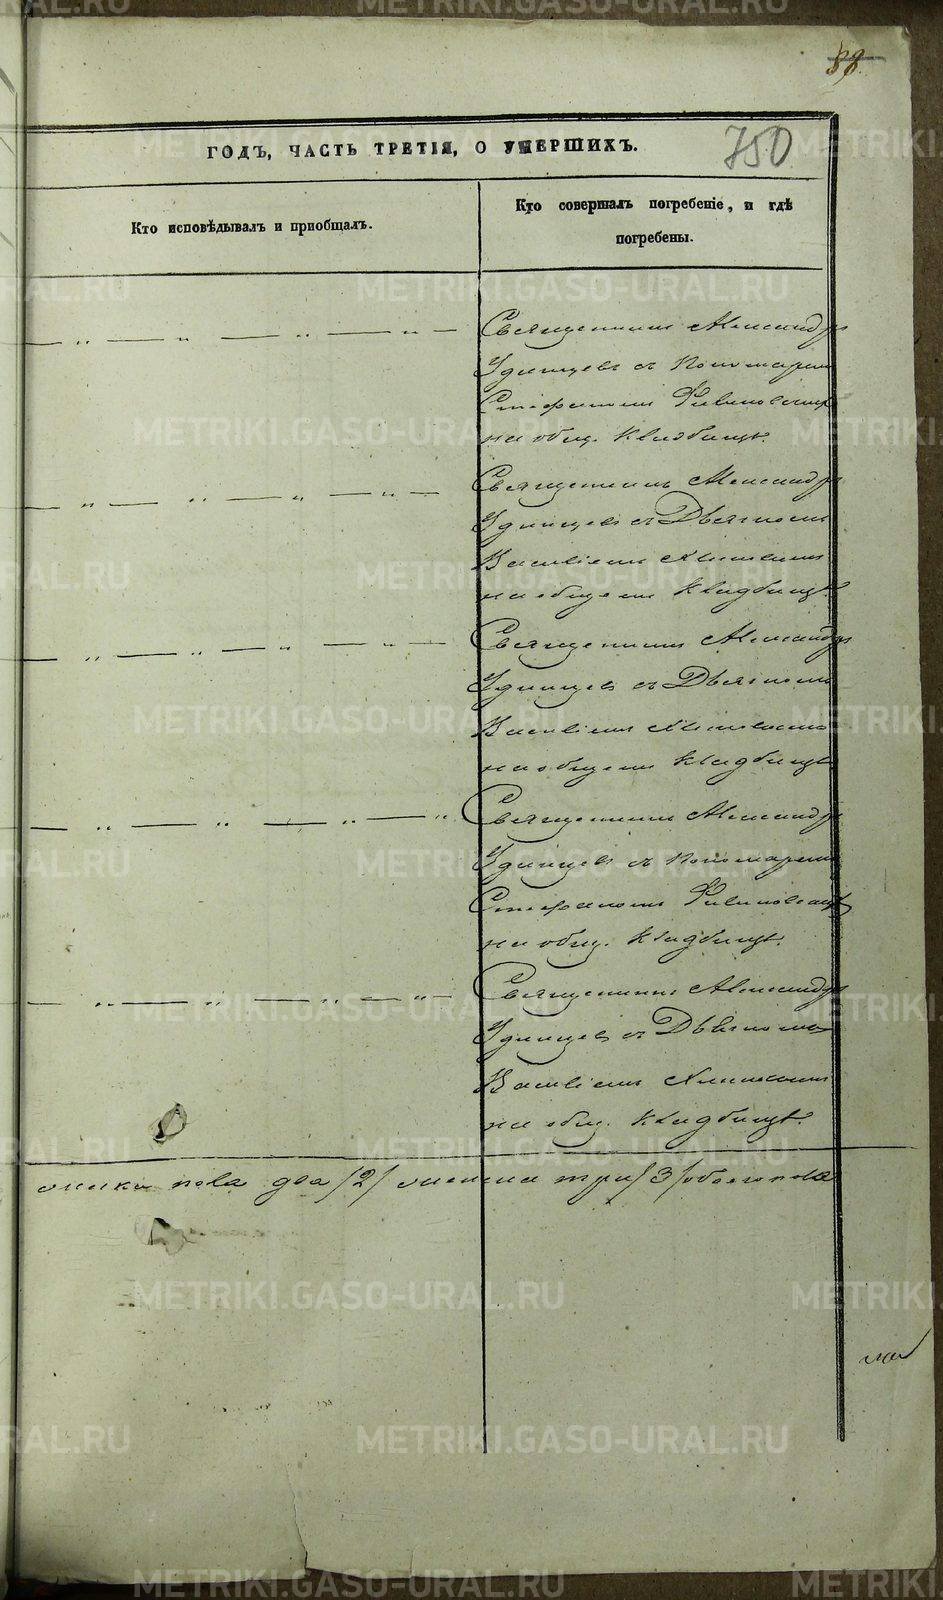 38.
ГОДЪ, ЧАСТЬ ТРЕТІЯ, О УМЕРШИХЪ.
750
Кто исповѣдывалъ и пріобщалъ.
Кто совершалъ погребеніе, и гдѣ
погребены.
Священникъ Александръ
Удинцевъ съ Пономаремъ
Стефаномъ
на общ. кладбищѣ.
Священникъ Александръ
Удинцевъ съ Дьячкомъ
Василіемъ
на общемъ кладбищѣ
Священникъ Александръ
Удинцевъ съ Дьячкомъ
Василіемъ
на общемъ кладбищѣ
Священникъ Александръ
Удинцевъ съ Пономаремъ
Стефаномъ
на общ. кладбищѣ.
Священникъ Александръ
Удинцевъ съ Дьячкомъ
Василіемъ
на общ. кладбищѣ.
пола два /2/ три /3/ обоего пола
METRIKI.GASO-URAL.RU